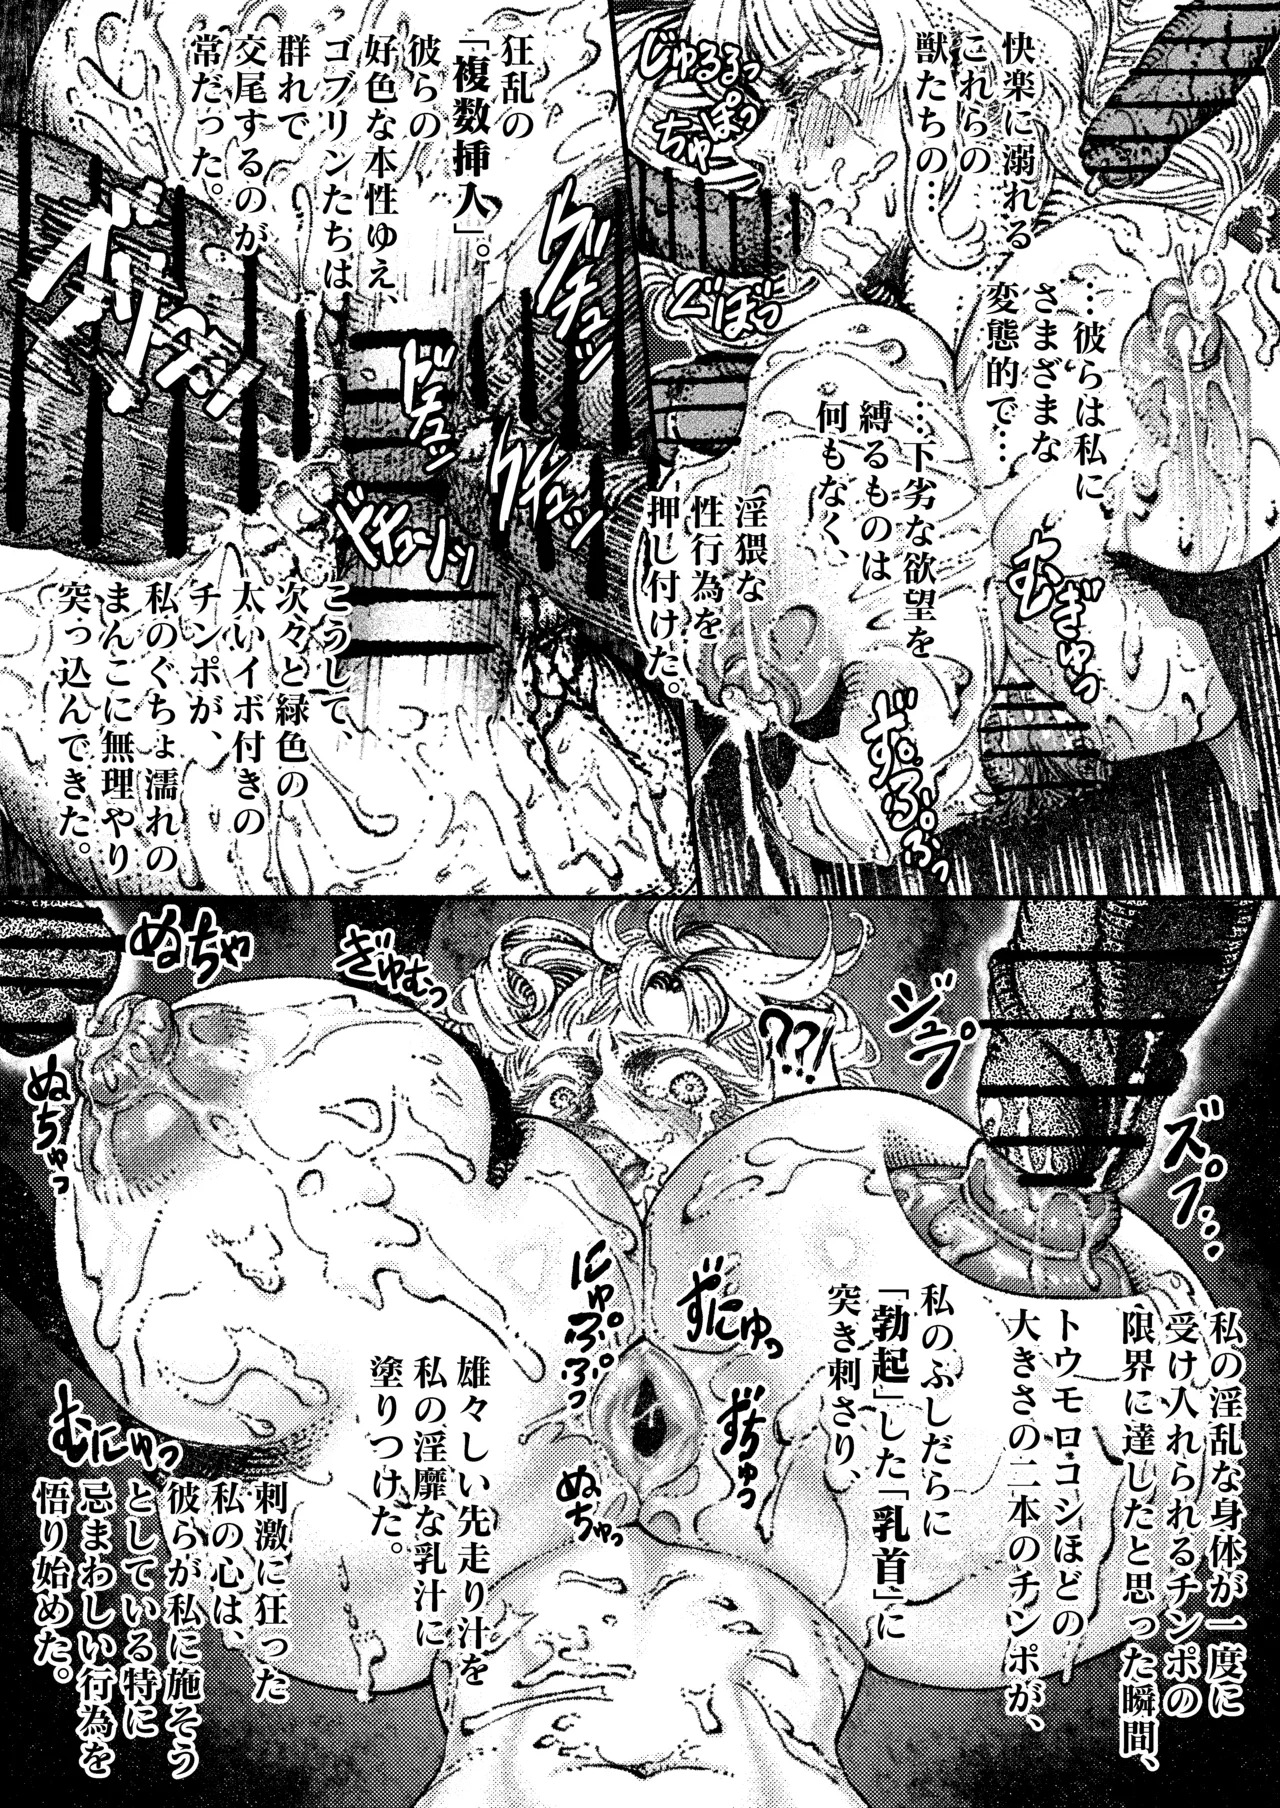 快楽に溺れる
これらの
獣たちの…
…彼らは私に
さまざまな
変態的で…
…下劣な欲望を
縛るものは
何もなく、
淫猥な
性行為を
押し付けた。
じゅるるっ
ちゅぽっ
ぐぽっ
むぎゅっ
ずぷぷっ
狂乱の
「複数挿入」。
彼らの
好色な本性ゆえ、
ゴブリンたちは
群れで
交尾するのが
常だった。
グチュッ
ドチュッ
グチュッ
ドチューッ
こうして、
次々と緑色の
太いイボ付きの
チンポが、
私のぐちょ濡れの
まんこに無理やり
突っ込んできた。
ジュプ
ズププ…
??!
ぎゅむっ
ぬちゃ
ぬちゅっ
私の淫乱な身体が一度に
受け入れられるチンポの
限界に達したと思った瞬間、
トウモロコシほどの
大きさの二本のチンポが、
私のふしだらに
「勃起」した「乳首」に
突き刺さり、
ずにゅっ
ずちゅっ
にゅぷぷっ
ぬちゅっ
雄々しい先走り汁を
私の淫靡な乳汁に
塗りつけた。
むにゅっ
刺激に狂った
私の心は、
彼らが私に施そう
としている特に
忌まわしい行為を
悟り始めた。